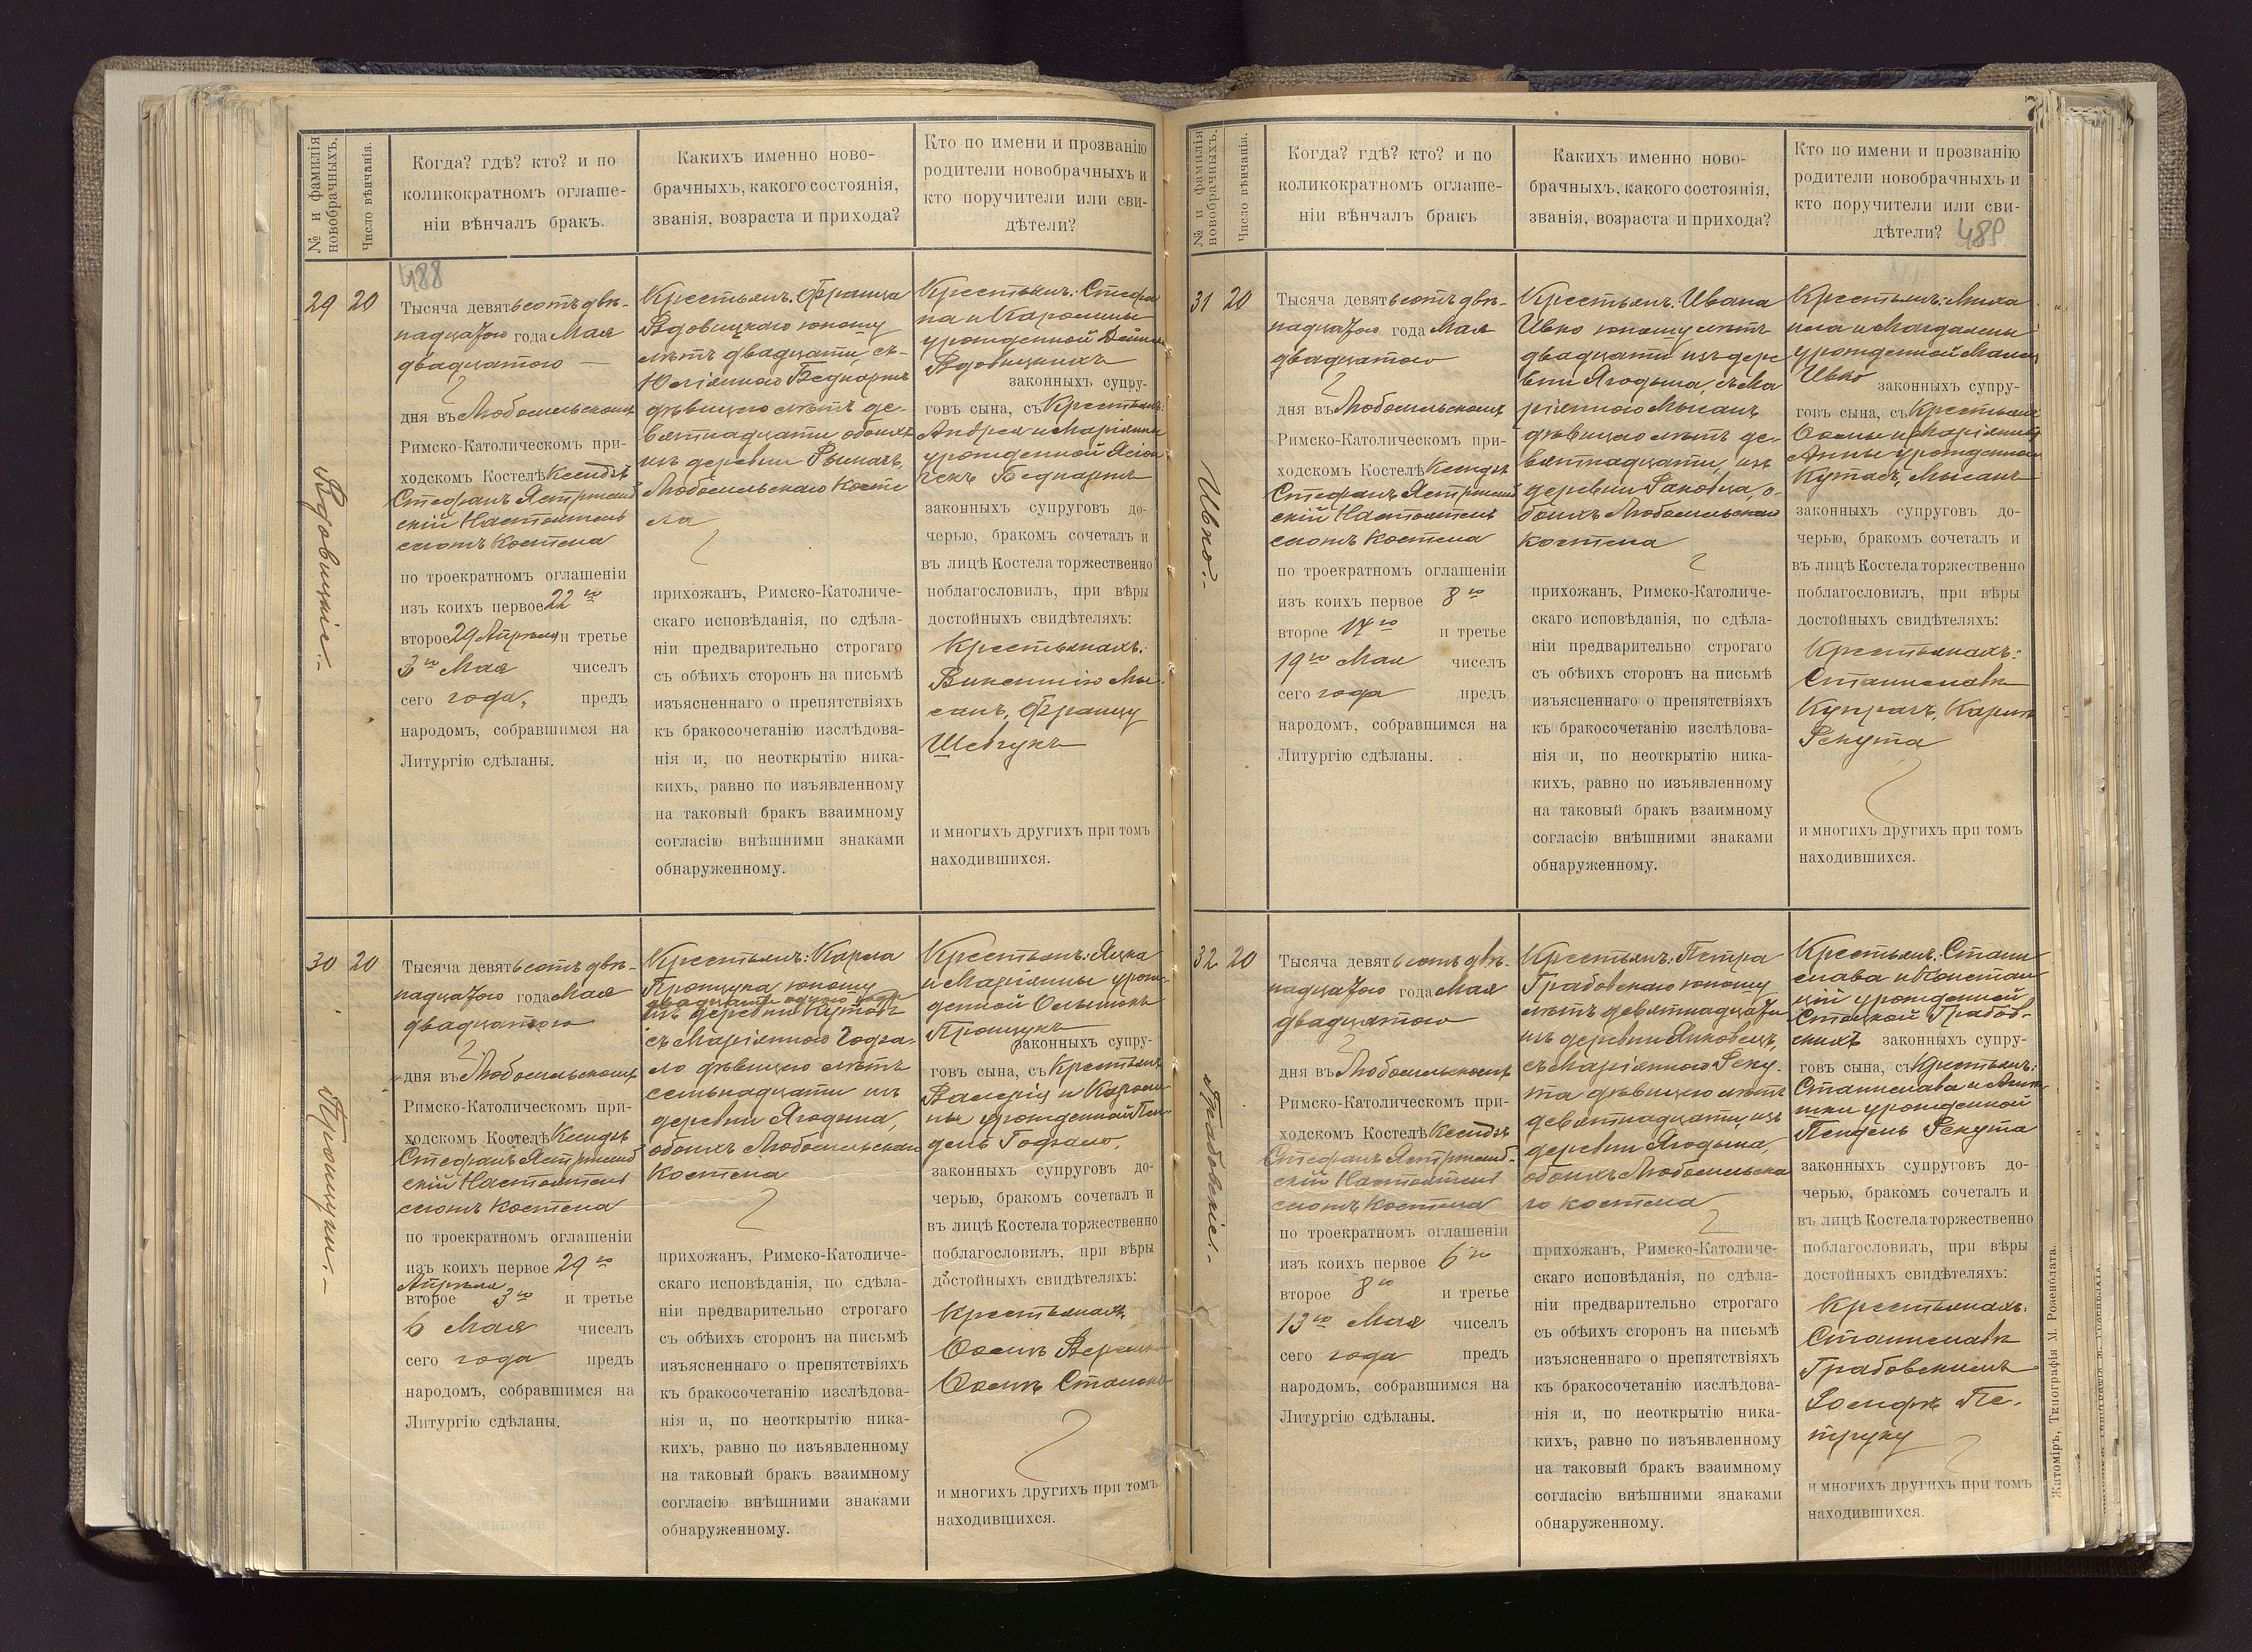 № и фамилія
новобрачныхъ.
Число вѣнчанія.
Когда? гдѣ? кто? и по
коликократномъ оглаше-
ніи вѣнчалъ бракъ.
Какихъ именно ново-
брачныхъ, какого состоянія,
званія, возраста и прихода?
Кто по имени и прозванію
родители новобрачныхъ и
кто поручители или сви-
дѣтели?
488
29
20
Вдовицкіе.
Тысяча девятьсотъ двѣ-
надцатого года Мая
двадцатого
дня въ Любомльскомъ
Римско-Католическомъ при-
ходскомъ Костелѣ Ксендзъ
Стефанъ Ястржемб
скій Настоятель
сиотъ Костела
по троекратномъ оглашеніи
изъ коихъ первое 22 го
второе 29 Апрѣля и третье
3 го Мая чиселъ
сего года, предъ
народомъ, собравшимся на
Литургію сдѣланы.
Крестьянъ: Франца
Вдовицкаго юношу
лѣтъ двадцати съ
Юліянною Беднаржъ
дѣвицею лѣтъ де-
вятнадцати, обоихъ
изъ деревни Рымачъ,
Любомльскаго Косте
ла
прихожанъ, Римско-Католиче-
скаго исповѣданія, по сдѣла-
ніи предварительно строгаго
съ обѣихъ сторонъ на письмѣ
изъясненнаго о препятствіяхъ
къ бракосочетанію изслѣдова-
нія и, по неоткрытію ника-
кихъ, равно по изъявленному
на таковый бракъ взаимному
согласію внѣшними знаками
обнаруженному.
Крестьянъ: Стефа
на и Каролины
урожденной
Вдовицкихъ
законныхъ супру-
говъ сына, съ Крестьянъ:
Андрея и Маріянны
урожденной
Беднаржъ
законныхъ супруговъ до-
черью, бракомъ сочеталъ и
въ лицѣ Костела торжественно
поблагословилъ, при вѣры
достойныхъ свидѣтеляхъ:
Крестьянахъ:
Викентію Мы
санъ, Францу
Шевчукъ
и многихъ другихъ при томъ
находившихся.
30
20
Процуки.
Тысяча девятьсотъ двѣ-
надцатого года Мая
двадцатого
дня въ Любомльскомъ
Римско-Католическомъ при-
ходскомъ Костелѣ Ксендзъ
Стефанъ Ястржемб
скій Настоятель
сиотъ Костела
по троекратномъ оглашеніи
изъ коихъ первое 29 го
Апрѣля
второе 3 го и третье
6 Мая чиселъ
сего года предъ
народомъ, собравшимся на
Литургію сдѣланы.
Крестьянъ: Карла
Процука юношу
двадцати одного года
изъ деревни Кутовъ
съ Маріянною Гофа-
ло дѣвицею лѣтъ
семьнадцати изъ
деревни Ягодина,
обоихъ Любомльскаго
Костела
прихожанъ, Римско-Католиче-
скаго исповѣданія, по сдѣла-
ніи предварительно строгаго
съ обѣихъ сторонъ на письмѣ
изъясненнаго о препятствіяхъ
къ бракосочетанію изслѣдова-
нія и, по неоткрытію ника-
кихъ, равно по изъявленному
на таковый бракъ взаимному
согласію внѣшними знаками
обнаруженному.
Крестьянъ: Яцка
и Маріянны урож-
денной
Процукъ
законныхъ супру-
говъ сына, съ Крестьянъ
Валерія и Кароли
ны урожденной Пен-
дель Гофало,
законныхъ супруговъ до-
черью, бракомъ сочеталъ и
въ лицѣ Костела торжественно
поблагословилъ, при вѣры
достойныхъ свидѣтеляхъ:
Крестьянахъ,
Осипъ
Осипъ
и многихъ другихъ при томъ
находившихся.
7
№ и фамилія
новобрачныхъ.
Число вѣнчанія.
Когда? гдѣ? кто? и по
коликократномъ оглаше-
ніи вѣнчалъ бракъ
Какихъ именно ново-
брачныхъ, какого состоянія,
званія, возраста и прихода?
Кто по имени и прозванію
родители новобрачныхъ и
кто поручители или сви-
дѣтели?
489
31
20
Ивко.
Тысяча девятьсотъ двѣ-
надцатого года Мая
двадцатого
дня въ Любомльскомъ
Римско-Католическомъ при-
ходскомъ Костелѣ Ксендзъ
Стефанъ Ястржемб
скій Настоятель
сиотъ Костела
по троекратномъ оглашеніи
изъ коихъ первое 8 го
второе 17 го и третье
19 го Мая чиселъ
сего года предъ
народомъ, собравшимся на
Литургію сдѣланы.
Крестьянъ: Ивана
Ивко юношу лѣтъ
двадцати изъ дере
вни Ягодина, съ Ма
ріянною Мысанъ
дѣвицею лѣтъ де-
вятнадцати, изъ
деревни Раковца, о-
боихъ Любомльскаго
костела
прихожанъ, Римско-Католиче-
скаго исповѣданія, по сдѣла-
ніи предварительно строгаго
съ обѣихъ сторонъ на письмѣ
изъясненнаго о препятствіяхъ
къ бракосочетанію изслѣдова-
нія и, по неоткрытію ника-
кихъ, равно по изъявленному
на таковый бракъ взаимному
согласію внѣшними знаками
обнаруженному.
Крестьянъ: Миха
ила и Магдалены
урожденной
Ивко законныхъ супру-
говъ сына, съ Крестьянъ
Осипы и Маріянны
Анны урожденной
Кутасъ, Мысанъ
законныхъ супруговъ до-
черью, бракомъ сочеталъ и
въ лицѣ Костела торжественно
поблагословилъ, при вѣры
достойныхъ свидѣтеляхъ:
Крестьянахъ:
Станиславъ
Купрачъ, Карлъ
Рекута
и многихъ другихъ при томъ
находившихся.
32
20
Грабовскіе.
Тысяча девятьсотъ двѣ-
надцатого года Мая
двадцатого
дня въ Любомльскомъ
Римско-Католическомъ при-
ходскомъ Костелѣ Ксендзъ
Стефанъ Ястржемб-
скій Настоятель
сиотъ Костела
по троекратномъ оглашеніи
изъ коихъ первое 6 го
второе 8 го и третье
13 го Мая чиселъ
сего года предъ
народомъ, собравшимся на
Литургію сдѣланы.
Крестьянъ: Петра
Грабовскаго юношу
лѣтъ девятнадцати
изъ деревни Янковецъ,
съ Маріянною Реку-
та дѣвицею лѣтъ
девятнадцати, изъ
деревни Ягодина,
обоихъ Любомльска
го костела
прихожанъ, Римско-Католиче-
скаго исповѣданія, по сдѣла-
ніи предварительно строгаго
съ обѣихъ сторонъ на письмѣ
изъясненнаго о препятствіяхъ
къ бракосочетанію изслѣдова-
нія и, по неоткрытію ника-
кихъ, равно по изъявленному
на таковый бракъ взаимному
согласію внѣшними знаками
обнаруженному.
Крестьянъ: Стани
слава и Констан
ціи урожденной
Стацкой Грабов-
скихъ законныхъ супру-
говъ сына, съ Крестьянъ:
Станислава и
урожденной
Пендель Рекута
законныхъ супруговъ до-
черью, бракомъ сочеталъ и
въ лицѣ Костела торжественно
поблагословилъ, при вѣры
достойныхъ свидѣтеляхъ:
Крестьянахъ:
Станиславъ
Грабовскимъ
Іосифъ Пе-
труку
и многихъ другихъ при томъ
находившихся.
Житоміръ, Типографія М. Розенблата.